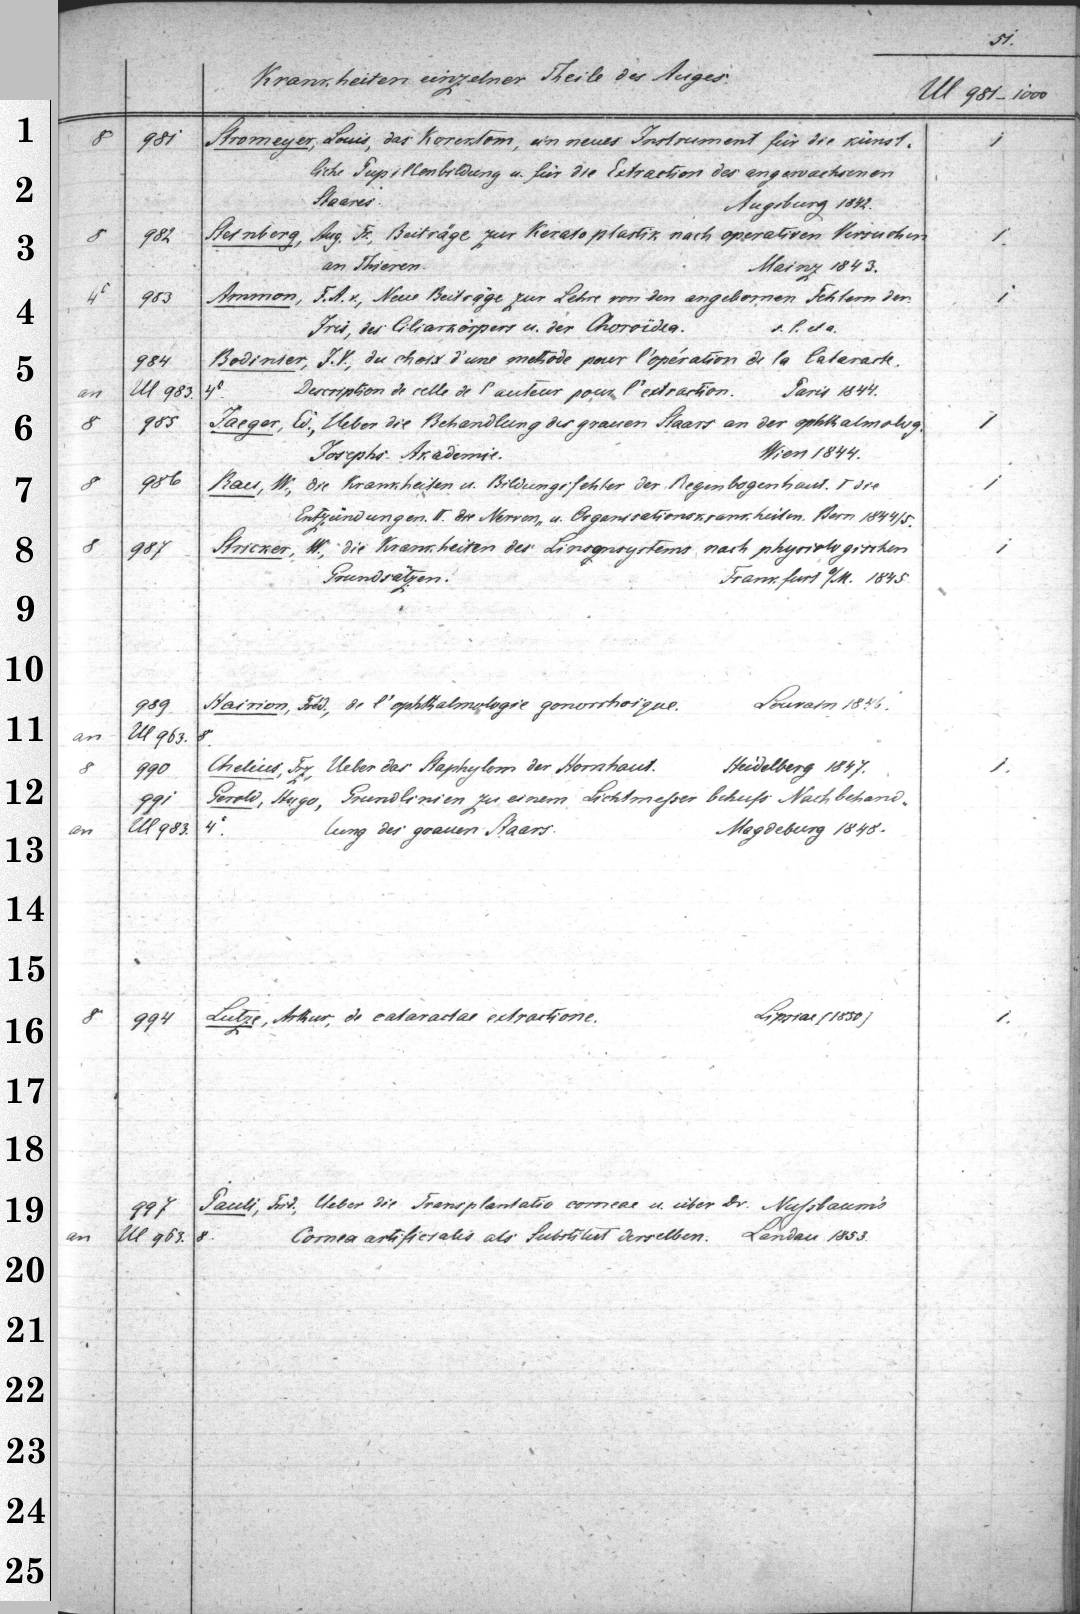 51.
Krankheiten einzelner Theile des Auges.
Ul 981-1000
1
8 981 Stromeyer, Louis, das Korektom, ein neues Instrument für die künst- 1
liche Pupillenbildung u. für die Extraction des angewachsenen
2
Staares. Augsburg 1842.
3
8 982 Steinberg, Aug. Fr., Beiträge zur Keratoplastik nach operativen Versuchen 1.
an Thieren. Mainz 1843.
4
4° 983 Ammon, F. A. v., Neue Beiträge zur Lehre von den angebornen Fehlern der 1
Iris, des Ciliarkörpers u. der Choroïdea. s. l. et a.
5
984 Bodinier, J. V., du choix d'une methode pour l'opération de la Cataracte.
an Ul 983. 4° Description de celle de l'auteur pour l'extraction. Paris 1844.
6
8 985 Jaeger, Ed., Ueber die Behandlung des grauen Staars an der ophthalmolog. 1
Josephs-Akademie. Wien 1844.
7
8 986 Rau, W., die Krankheiten u. Bildungsfehler der Regenbogenhaut. I die 1
Entzündungen. II. die Nerven- u. Organisationskrankheiten. Bern 1844/5.
8
8 987 Stricker, W., die Krankheiten des Linsensystems nach physiologischen 1
Grundsätzen. Frankfurt a/M. 1845
9
10
989 Hairion, Fréd., de l'ophthalmologie gonorrhoïque. Louvain 1846.
11
an Ul 963. 8.
8 990 Chelius, Frz, Ueber das Staphylom der Hornhaut. Heidelberg 1847. 1.
12
991 Gerold, Hugo, Grundlinien zu einem Lichtmesser behufs Nachbehand-
an Ul 983. 4°. lung des grauen Staars. Magdeburg 1848.
13
14
15
16
8 994 Lutze, Arthur, de cataractae extractione. Lipsiae [1850] 1.
17
18
19
997 Pauli, Frid., Ueber die Transplantatio corneae u. über Dr. Nußbaum's
an Ul 963. 8. Cornea artificialis als Substitut derselben. Landau 1853.
20
21
22
23
24
25